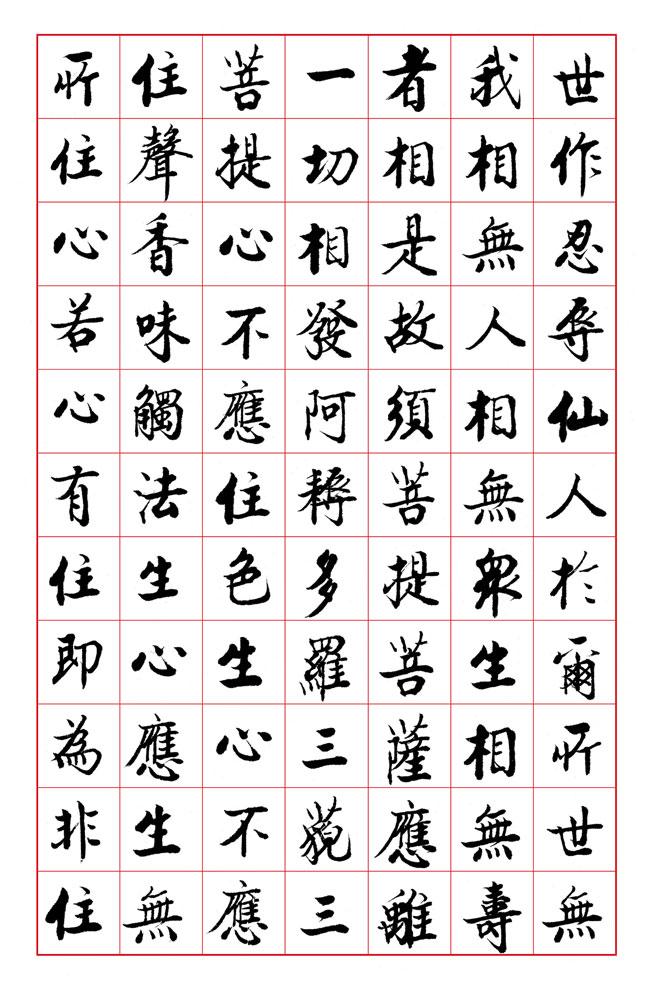 世作忍辱仙人於爾所世無
我相無人相無眾生相無壽
者相是故須菩提菩薩應離
一切相發阿耨多羅三藐三
菩提心不應住色生心不應
住聲香味觸法生心應生無
所住心若心有住即為非住